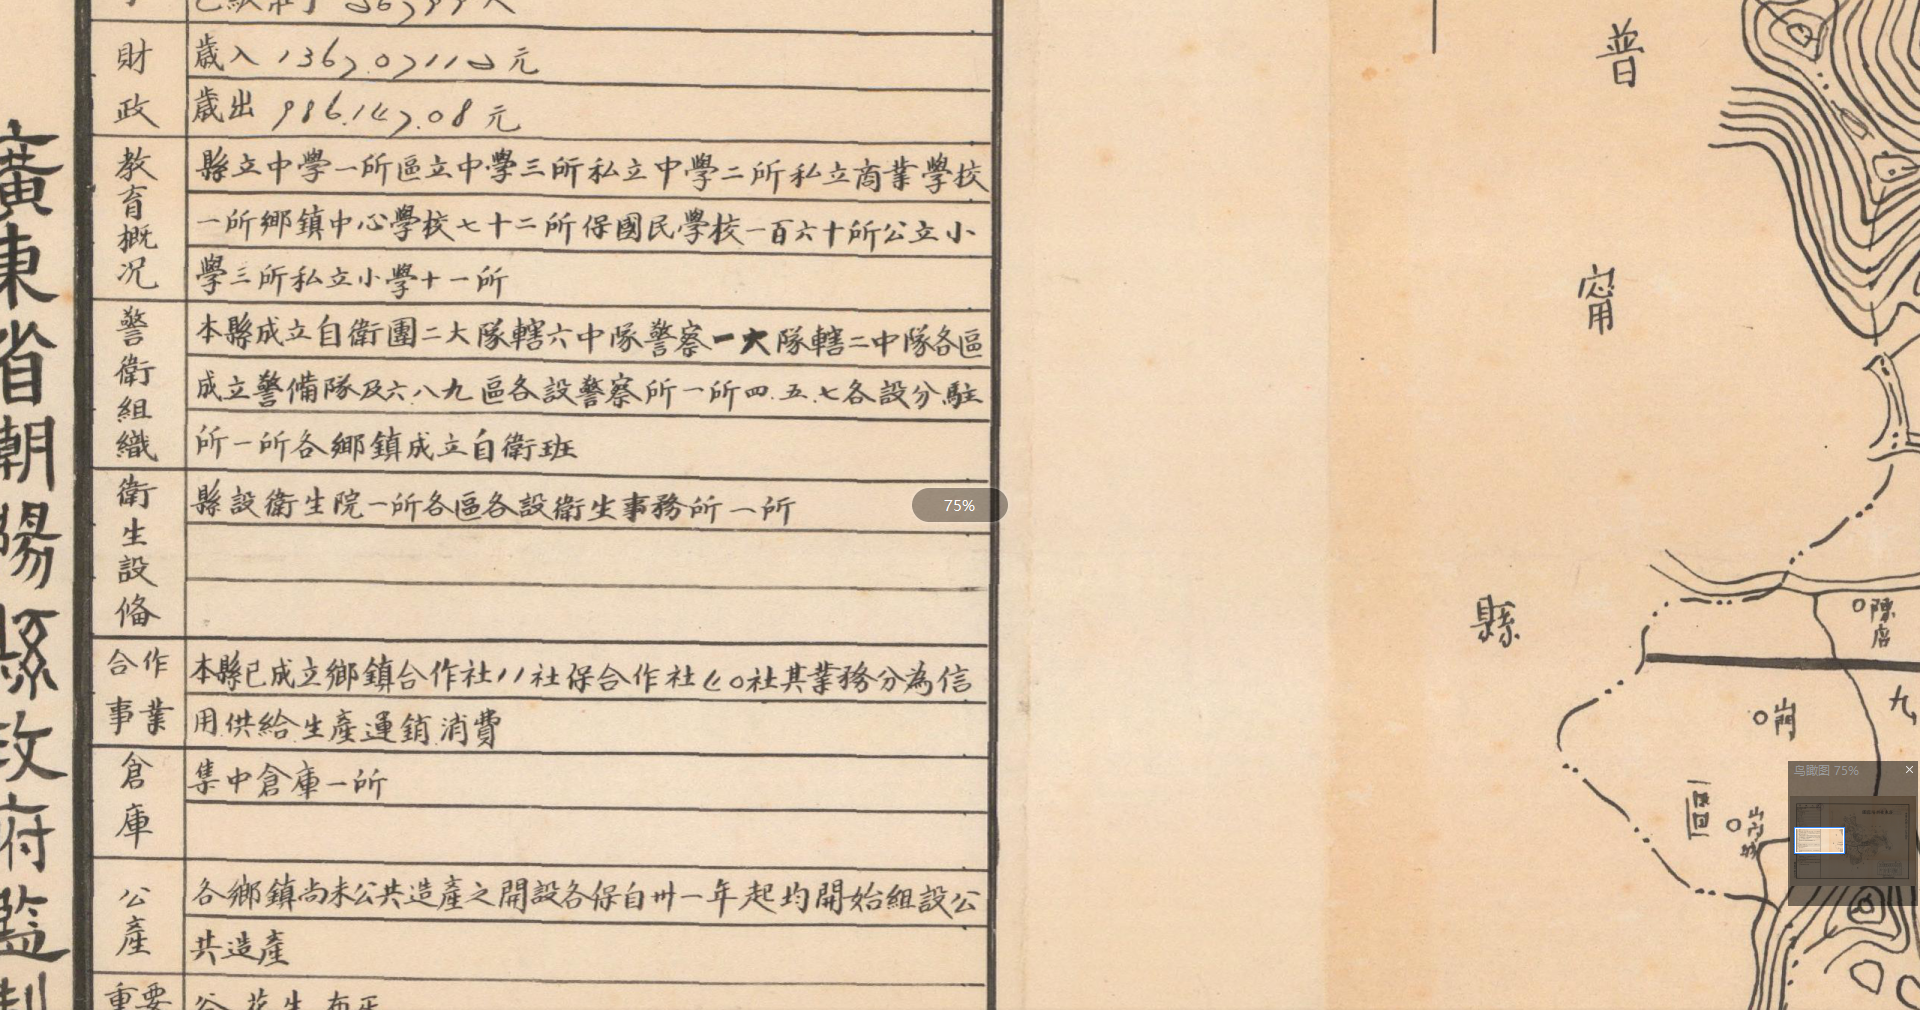 廣東省朝陽縣政府監制
財政
歲入 1367.07115元
歲出 986.147.08元
教育概况
縣立中學一所區立中學三所私立中學二所私立商業學校
一所鄉鎮中心學校七十二所保國民學校一百六十所公立小
學三所私立小學十一所
警衛組織
本縣成立自衛團二大隊轄六中隊警察一大隊轄二中隊各區
成立警備隊及六.八九區各設警察所一所四.五.七各設分駐
所一所各鄉鎮成立自衛班
衛生設俻
縣設衛生院一所各區各設衛生事務所一所
合作事業
本縣已成立鄉鎮合作社11社保合作社40社其業務分為信
用供給生產運銷消費
倉庫
集中倉庫一所
公產
各鄉鎮尚未公共造產之開設各保自卅一年起均開始組設公
共造產
重要
普
甯
縣
陳店
九
山門
區
75%
鸟瞰图 75%